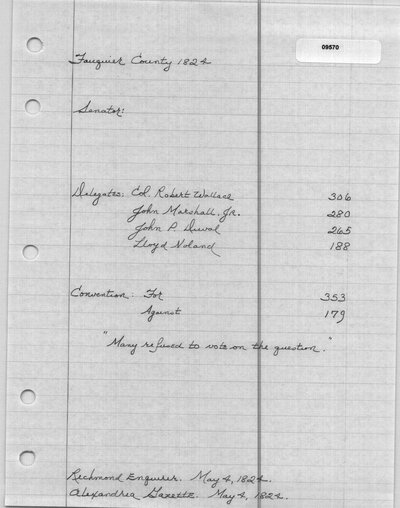 09570
Fauquier County 1824
Senator:
Delegates: Col. Robert Wallace 306
John Marshall, Jr. 280
John P. Duval 265
Lloyd Noland 188
Convention: For 353
Against 179
"Many refused to vote on the question."
Richmond Enquirer. May 4, 1824.
Alexandria Gazette. May 4, 1824.